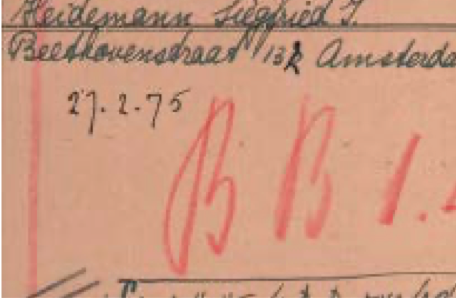 Heidemann Siegfried J.
Beethovenstraat 132 Amsterda
27.2.75
B B 1.